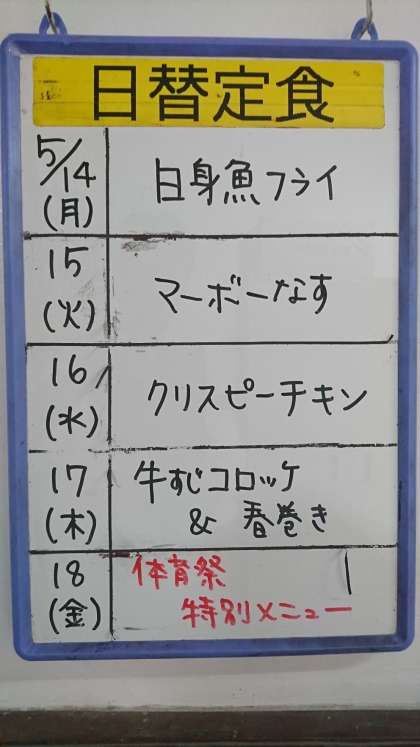 日替定食
5/14
(月)
白身魚フライ
15
(火)
マーボーなす
16
(水)
クリスピーチキン
17
(木)
牛すじコロッケ
& 春巻き
18
(金)
体育祭
特別メニュー